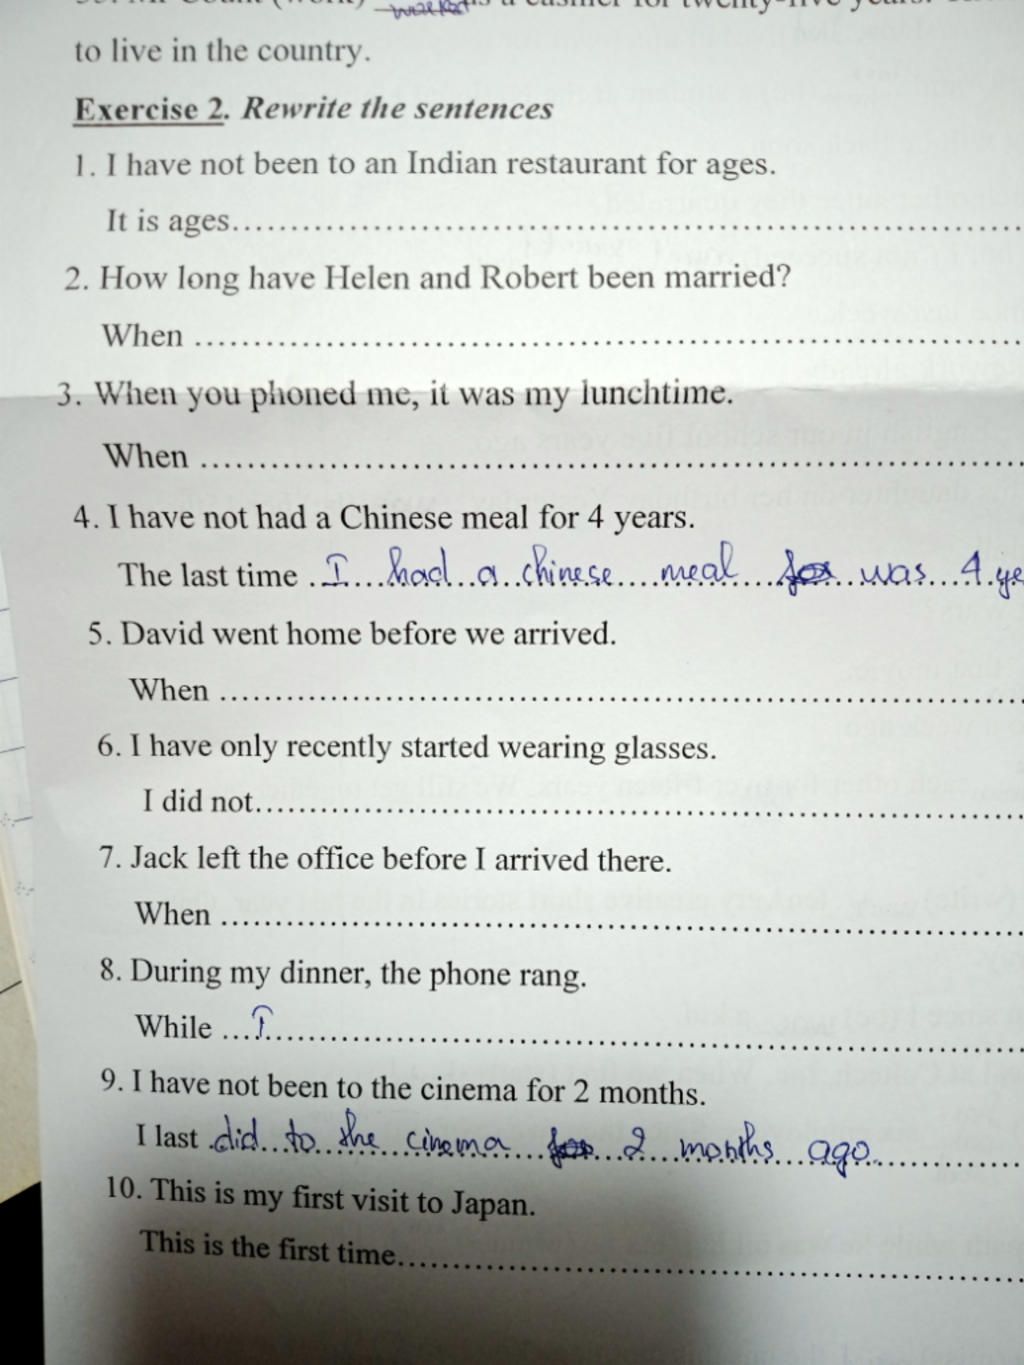 to live in the country.
Exercise 2. Rewrite the sentences
1. I have not been to an Indian restaurant for ages.
It is ages..........................................................
2. How long have Helen and Robert been married?
When ..........................................................
3. When you phoned me, it was my lunchtime.
When ..........................................................
4. I have not had a Chinese meal for 4 years.
The last time I had a chinese meal was 4
5. David went home before we arrived.
When ..........................................................
6. I have only recently started wearing glasses.
I did not..........................................................
7. Jack left the office before I arrived there.
When ..........................................................
8. During my dinner, the phone rang.
While ...I..........................................................
9. I have not been to the cinema for 2 months.
I last did to the cinema 2 months ago
10. This is my first visit to Japan.
This is the first time..........................................................